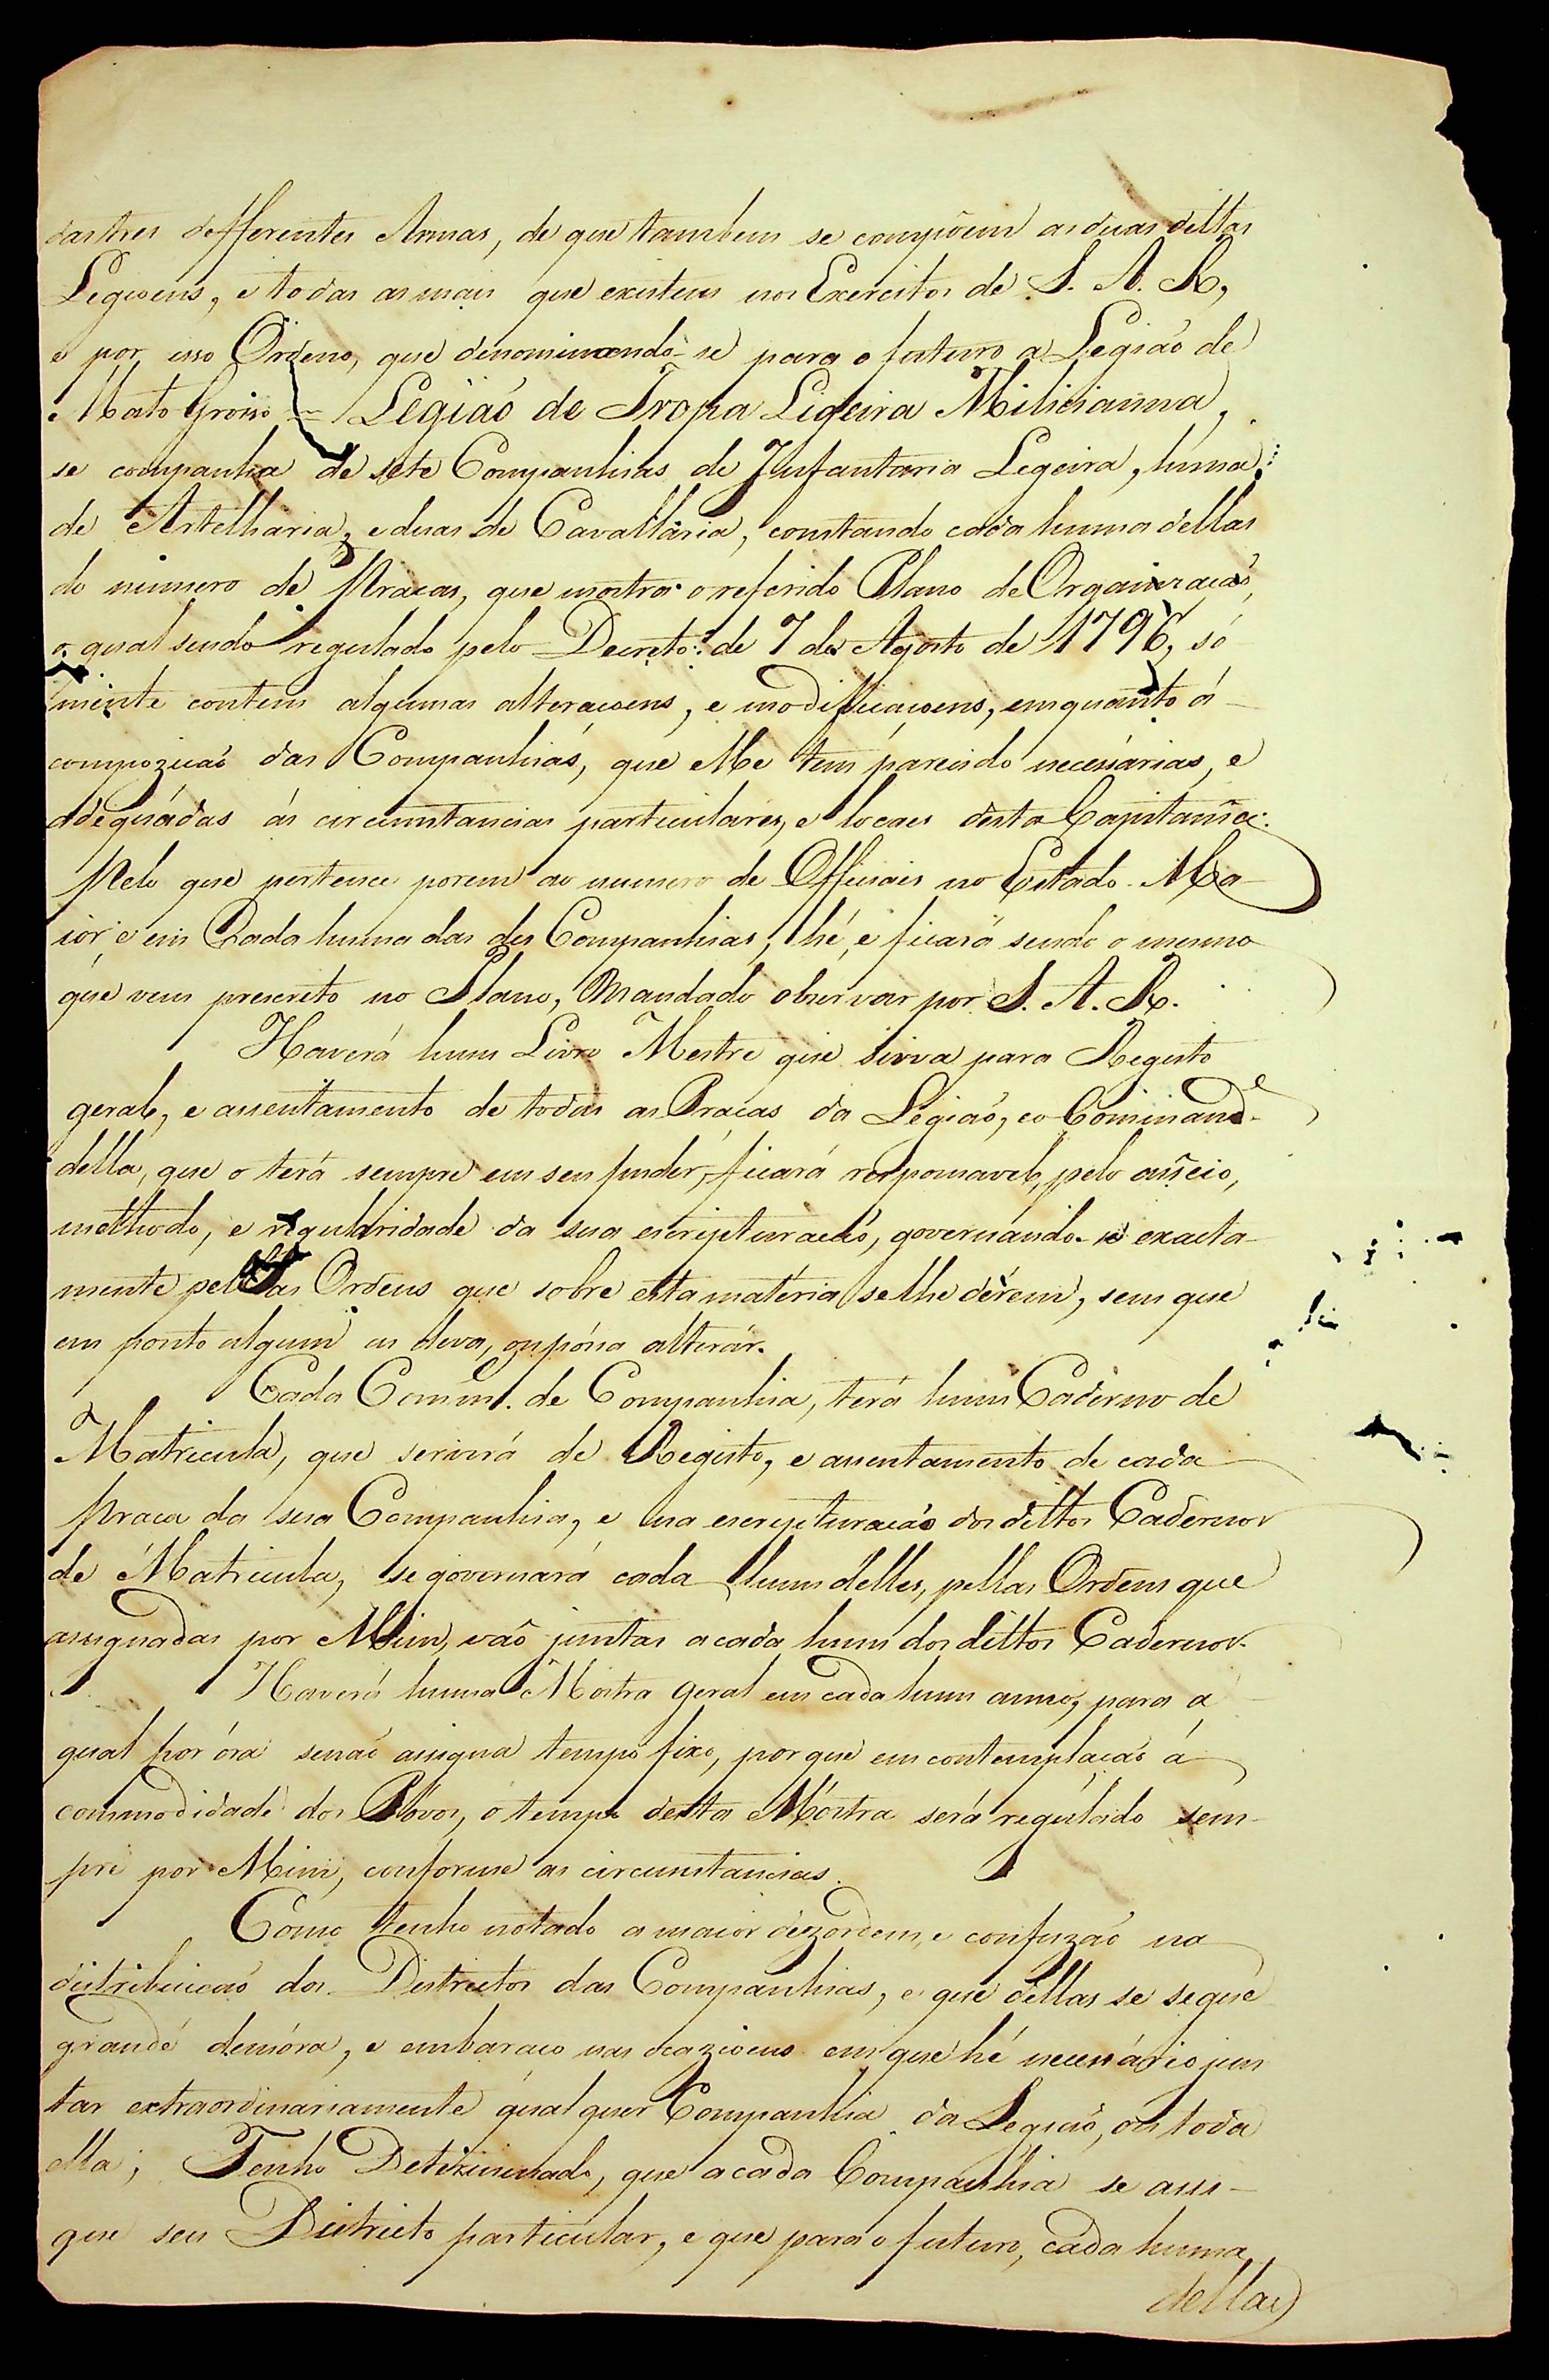 das tres defferentes Armas, de que tambem se compõem as duas dittas
Legioens, e todas as mais que existem nos Exercitos de S. A. R,
e por isso Ordeno, que denominando-se para o futuro a Legiaõ de
Mato Grosso = Legiaõ de Tropa Ligeira Milicianna,
se companha de sete Companhias de Infantaria Legeira, huma
de Artelharia, e duas de Cavallaria, constando cada huma dellas
do número de Praças, que mostra o referido Plano de Organizaçaõ,
o qual sendo regulado pelo Decreto de 7 de Agosto de 1796, só
mente contem algumas alteraçoens, e modificaçoens, emquanto á
compoziçaõ das Companhias, que Me tem parecido necessárias, e
adequádas ás circumstancias particulares, e locaes desta Capitania.
Pelo que pertence porem ao numero de Officiais no Estado Ma-
ior, e em Cada huma das des Companhias, hé, e ficará sendo o mesmo
que vem prescreto no Plano, Mandado observar por S. A. R.
Haverá hum Livro Mestre que sirva para Registo
geral, e assentamento de todas as Praças da Legiaõ, e o Command.e
della, que o terá sempre em seu puder, ficará responsavel, pelo asseio,
methodo, e regularidade da sua escripturaçaõ, governando-se exacta-
mente pellas Ordens que sobre esta matéria se lhe dérem, sem que
em ponto algum as deva, ou póssa alterár.
Cada Comm. de Companhia, terá hum Caderno de
Matricula, que servirá de Registo, e assentamento de cada
Praça da sua Companhia, e na escripturaçaõ dos dittos Cadernos
de Matricula, se governará cada hum delles, pellas Ordens que
assignadas por Mim, vaõ juntas a cada hum dos dittos Cadernos.
Haverá huma Mostra geral em cada hum anno, para a
qual por óra senaõ assigna tempo fixo, por que em contemplaçaõ á
commodidade dos Póvos, o tempo desta Móstra será regulado sem-
pre por Mim, conforme as circunstancias.
Como tenho notado a maior dezordem, e confuzaõ na
distribuiçaõ dos Districtos das Companhias, e que dellas se segue
grande demóra, e embaraço nas ocazioens em que hé necessário jun
tar extraordinariamente qualquer Companhia da Legiaõ, ou toda
ella; Tenho Determinado, que a cada Companhia se assi-
gne seu Districto particular, e que para o futuro, cada huma
dellas